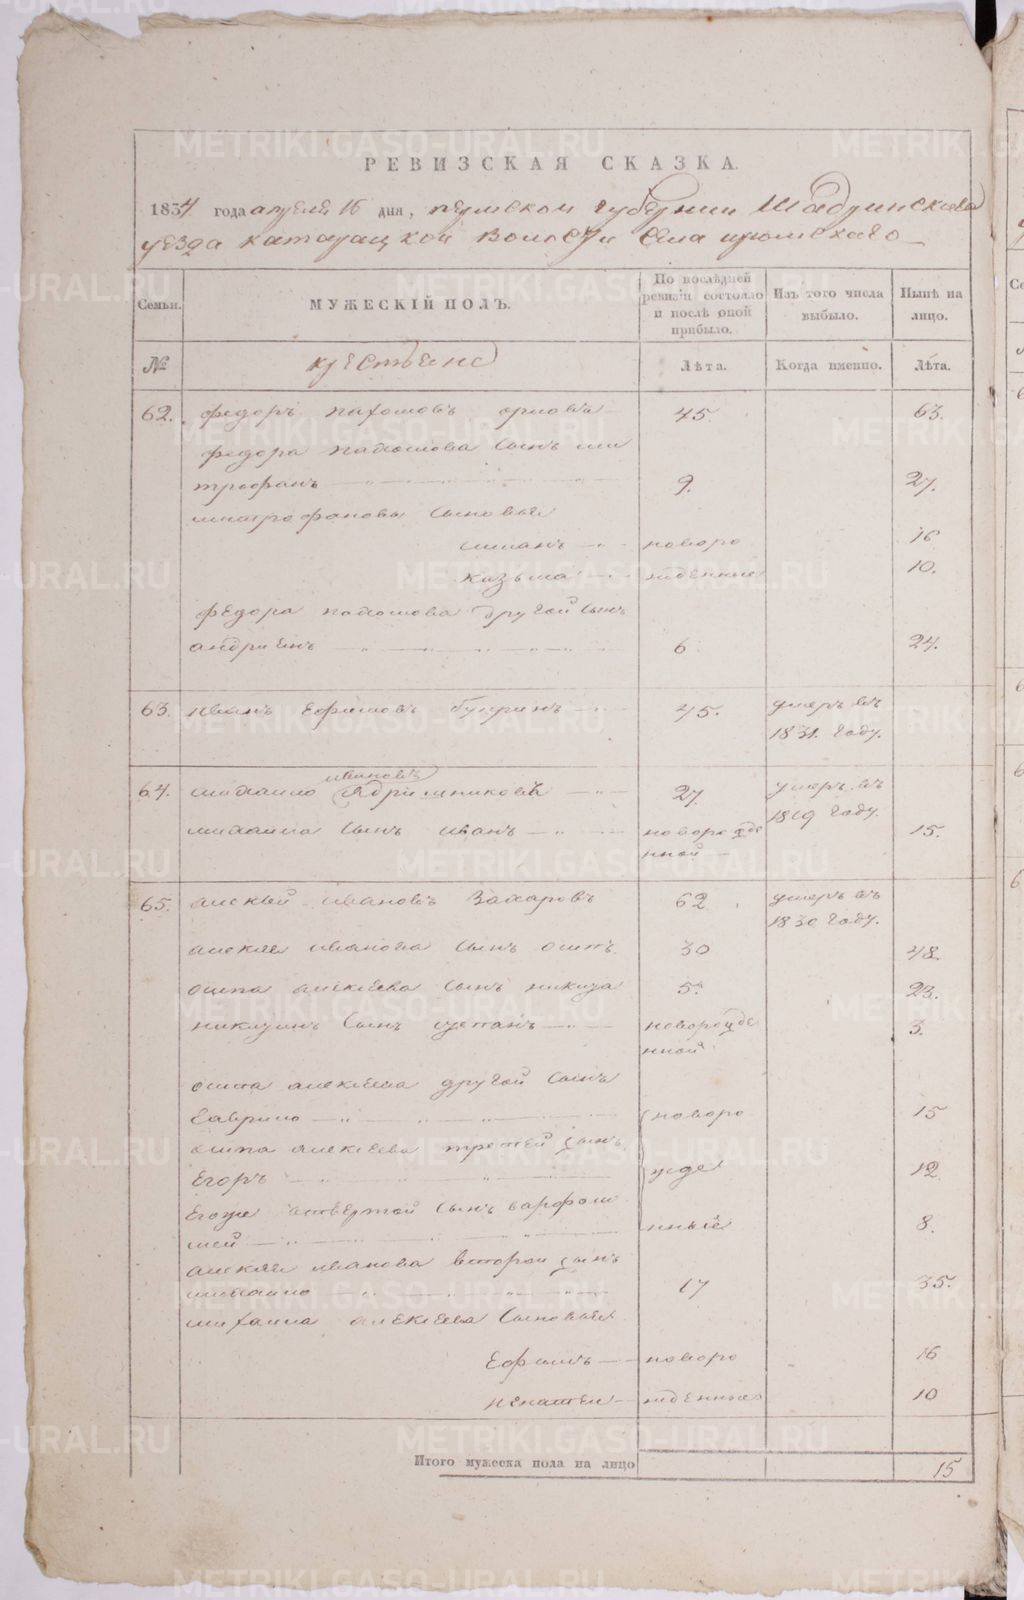 РЕВИЗСКАЯ СКАЗКА.
1834 года апреля 16 дня, пермской губернии Шадринскаго
уезда катайской Волости села
Семьи. МУЖЕСКІЙ ПОЛЪ. По послѣдней ревизіи состояло и послѣ оной прибыло. Изъ того числа выбыло. Нынѣ на лицо.
№ крестьяне Лѣта. Когда именно. Лѣта.
62. федоръ пахомовъ орловъ 45. 63.
федора пахомова сынъ ми
трофанъ 9. 27.
митрофановы сыновья
новоро 16
козьма жденные 10.
федора пахомова другой сынъ
андриянъ 6 24.
63. иванъ ефимовъ 45. умеръ въ
1831. году.
ивановъ
64. михаило 27 умеръ въ
1819 году.
михаила сынъ иванъ новорожде 15.
нной
65. алексей ивановъ Захаровъ 62 умеръ въ
1830 году.
алексея иванова сынъ осипъ 30 48.
осипа алексеева сынъ никита 5. 23.
никитинъ сынъ степанъ новорожде 3.
нной
осипа алексеева другой сынъ
гаврило новоро 15
осипа алексеева третей сынъ
Егоръ жде 12
Егоже четвертой сынъ варфоло
мей нныя 8.
алексея иванова второй сынъ
михаило 17 35.
михаила алексеева сыновья
Ефимъ новоро 16
жденные 10
Итого мужеска пола на лицо 15
METRIKI.GASO-URAL.RU